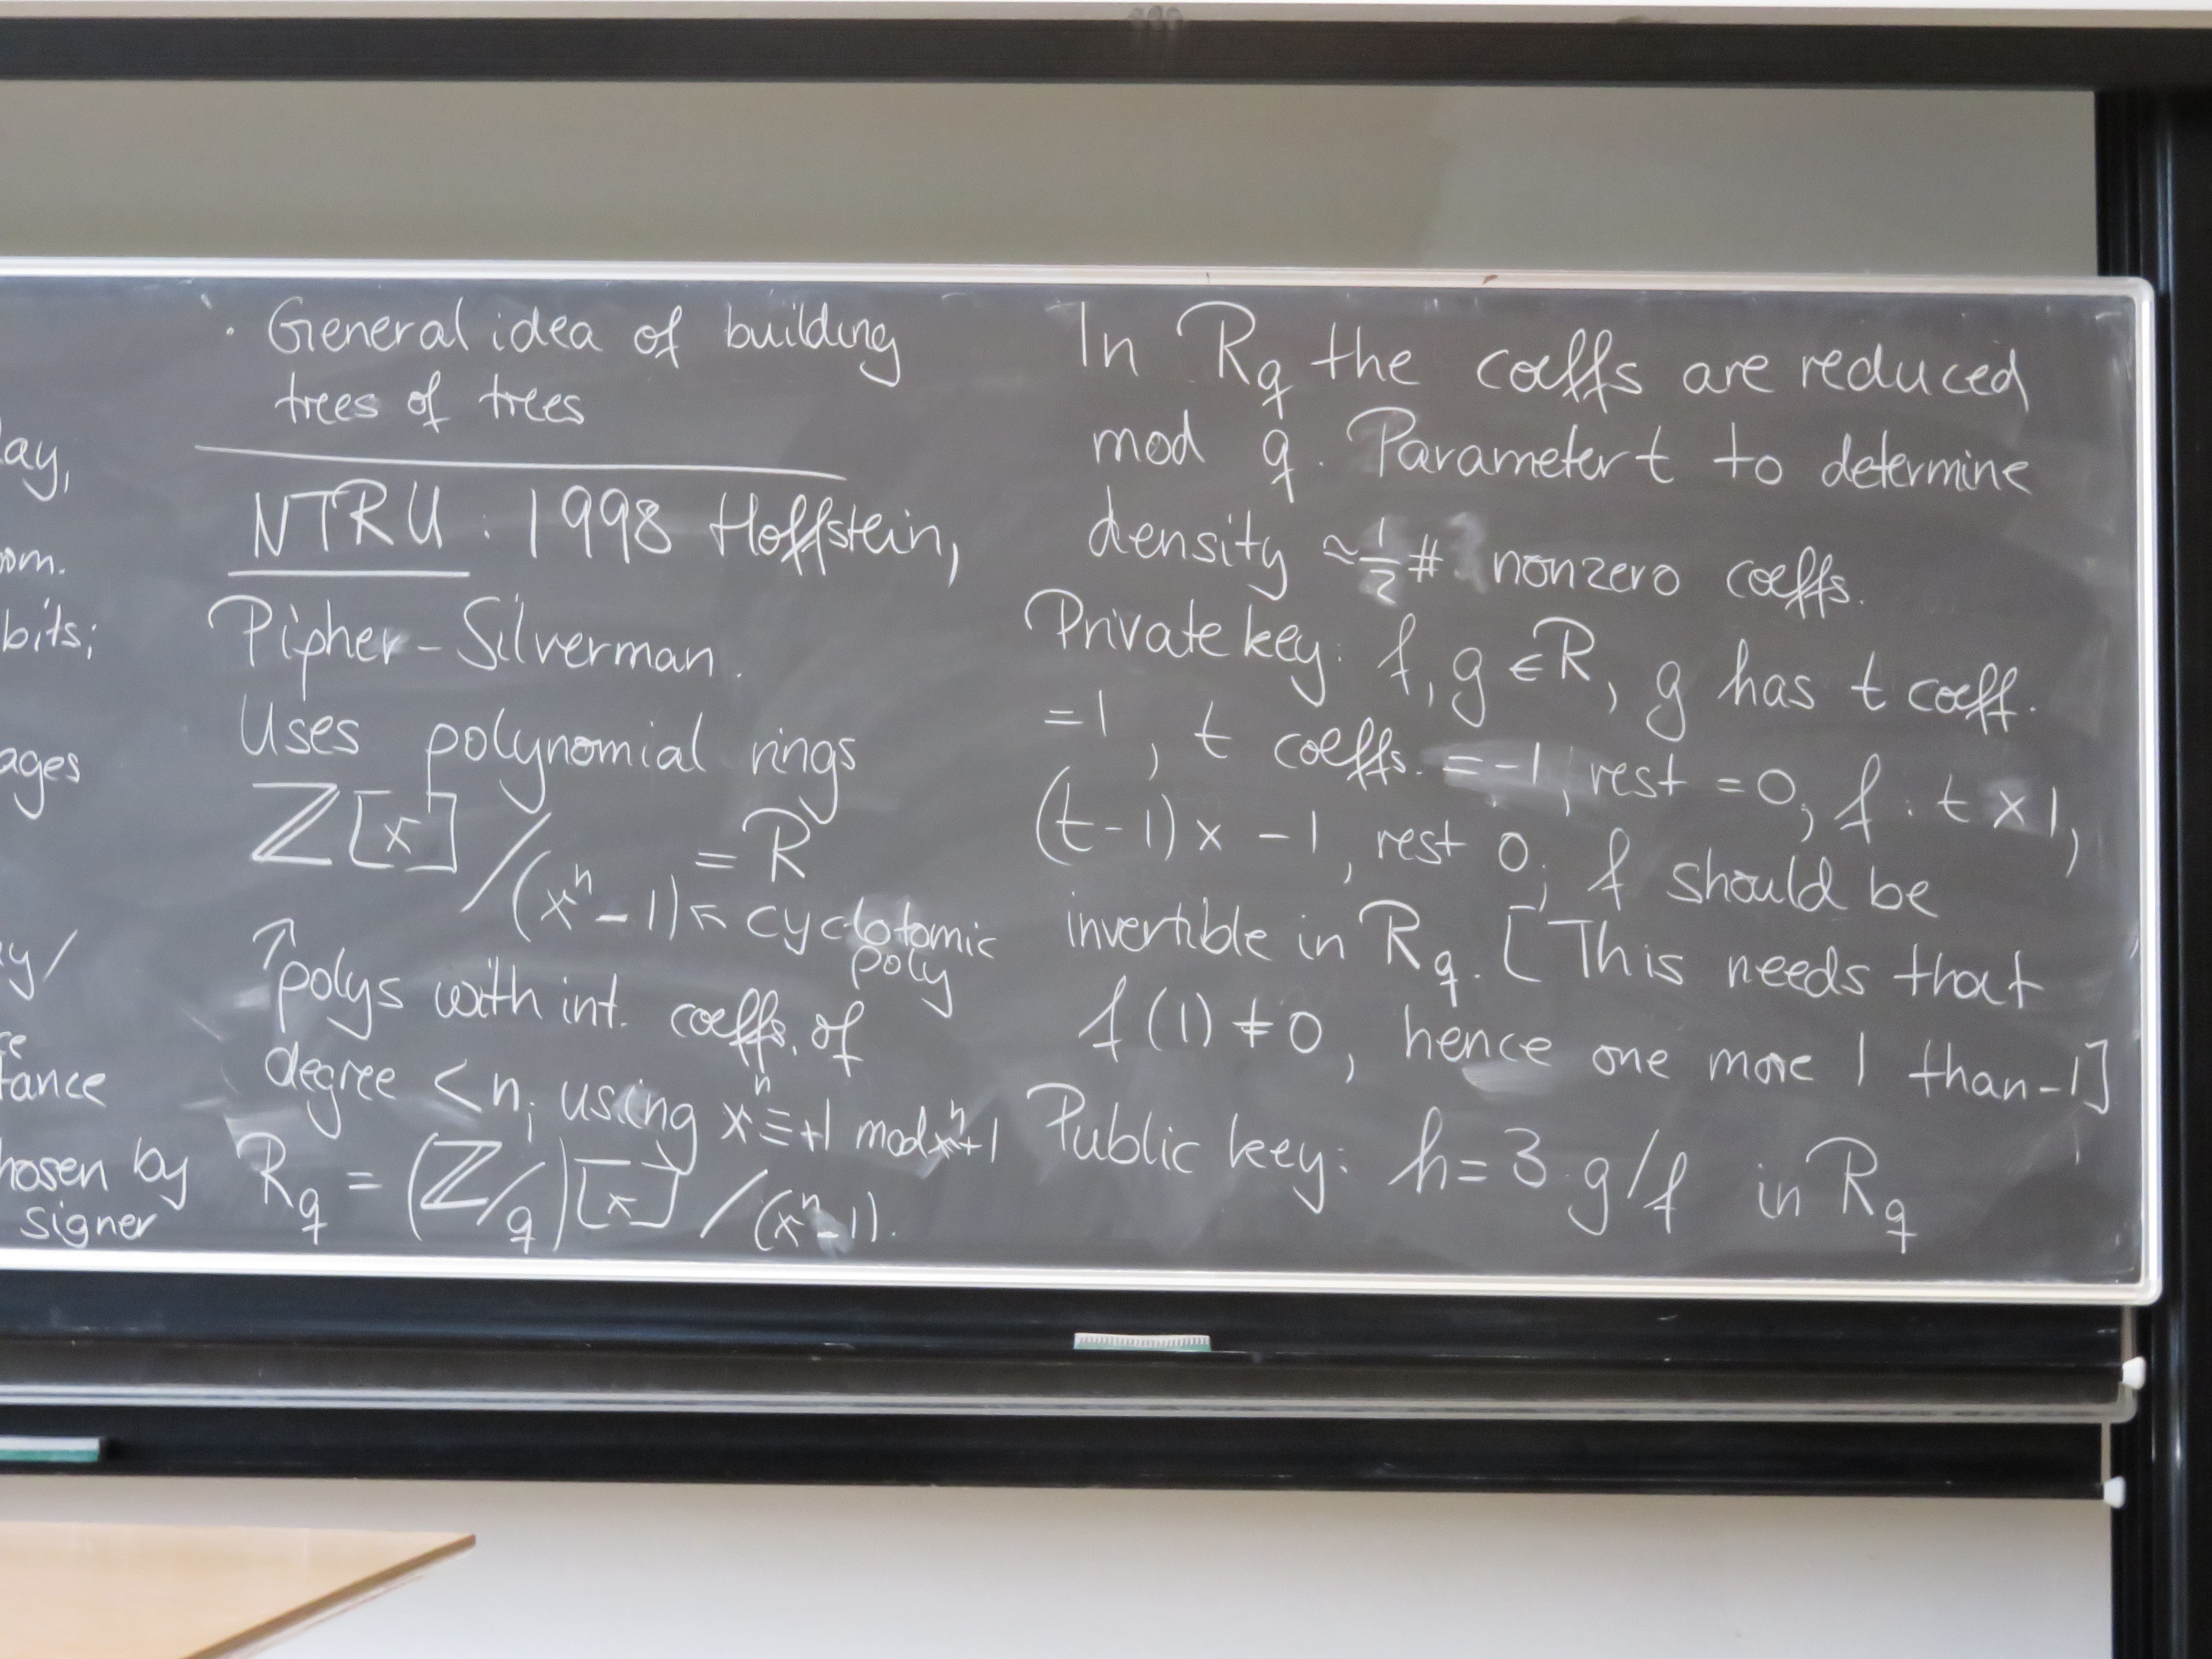 lay,
om.
bits;
ages
y/
ce
tance
hosen by
signer
· General idea of building
trees of trees
NTRU : 1998 Hoffstein,
Pipher-Silverman.
Uses polynomial rings
ℤ[x]/(xⁿ-1) = R
↖ cyclotomic
poly
↑ polys with int. coeffs. of
degree < n; using xⁿ≡+1 mod xⁿ+1
R_q = (ℤ/q)[x]/(xⁿ-1).
In R_q the coeffs are reduced
mod q. Parameter t to determine
density ≈ 1/2 # nonzero coeffs.
Private key: f, g ∈ R, g has t coeff.
=1, t coeffs. = -1, rest = 0, f : t × 1,
(t-1) × -1, rest 0; f should be
invertible in R_q. [This needs that
f(1) ≠ 0, hence one more 1 than -1]
Public key: h = 3·g/f in R_q